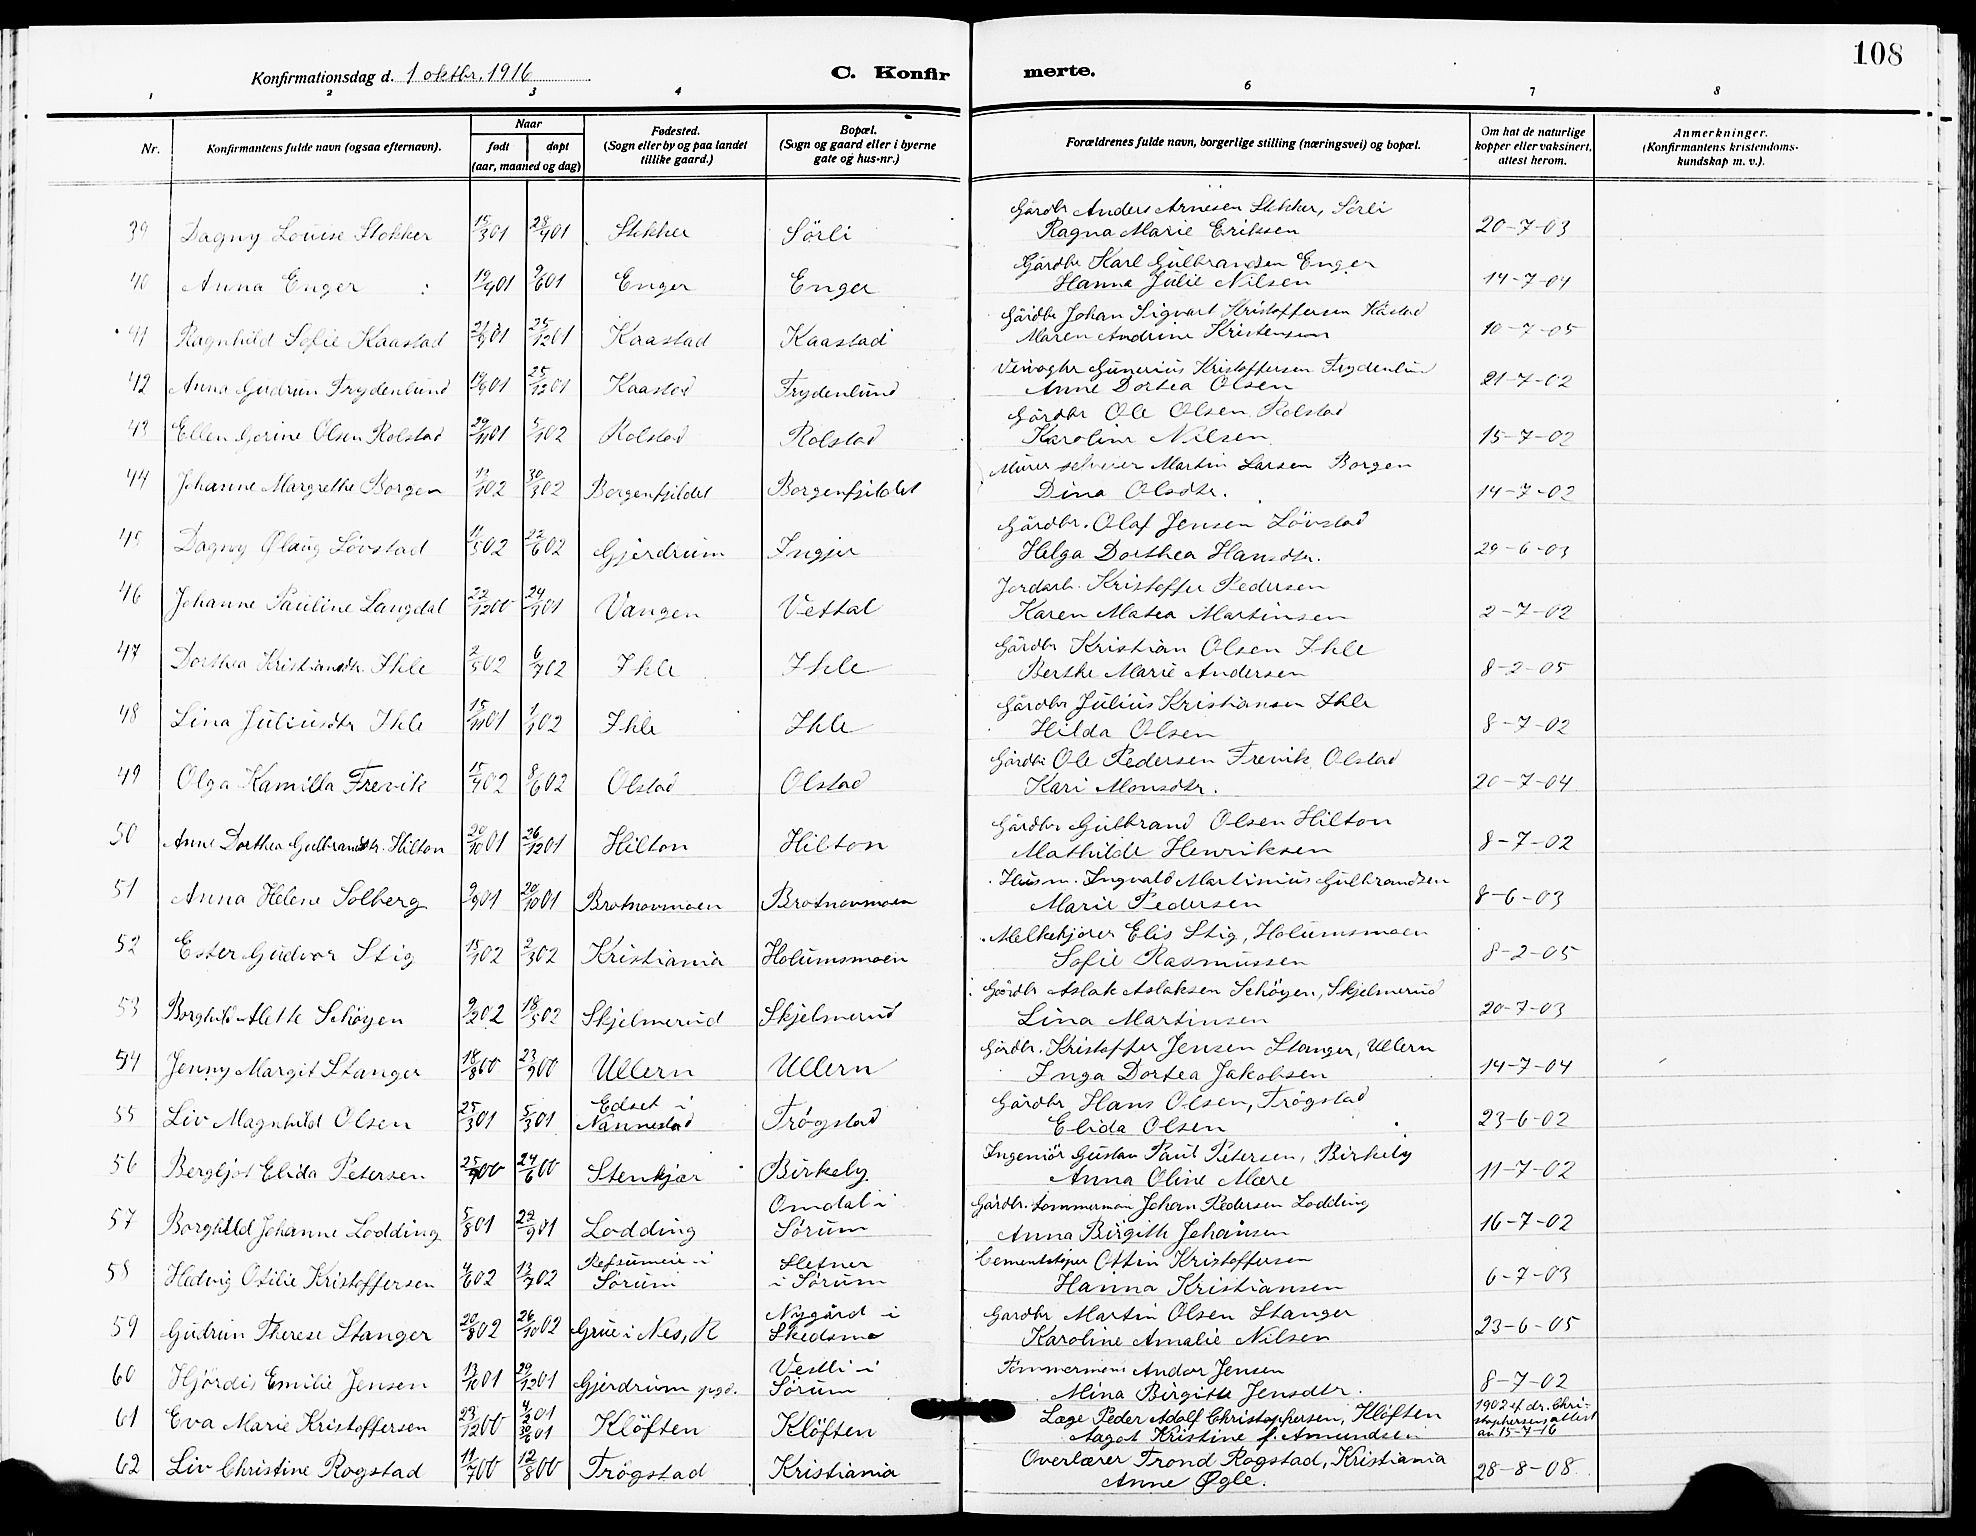 108
Konfirmationsdag d. 1 oktbr. 1916
C. Konfirmerte.
1 2 3 4 6 7 8
Nr.
Konfirmantens fulde navn (ogsaa efternavn).
Naar
født døpt
(aar, maaned og dag)
Fødested.
(Sogn eller by og paa landet
tillike gaard.)
Bopæl.
(Sogn og gaard eller i byerne
gate og hus-nr.)
Forældrenes fulde navn, borgerlige stilling (næringsvei) og bopæl.
Om hat de naturlige
kopper eller vaksinert,
attest herom.
Anmerkninger.
(Konfirmantens kristendoms-
kundskap m. v.).
Gårdbr Anders Arnesen Stokker, Sörli
39 Dagny Louise Stokker 15/3 01 28/4 01 Stokker Sörli Ragna Marie Eriksen 20-7-03
Gårdbr Karl Gulbrandsen Enger
40 Anna Enger 19/4 01 9/6 01 Enger Enger Hanna Julie Nilsen 14-7-04
Gårdbr Johan Sigvart Kristoffersen Kåstad
41 Ragnhild Sofie Kaastad 21/9 01 25/12 01 Kaastad Kaastad Maren Andrine Kristensen 10-7-05
Gunerius Kristoffersen Frydenlund
42 Anna Gudrun Frydenlund 19/9 01 25/12 01 Kaastad Frydenlund Anne Dortea Olsen 21-7-02
Gårdbr Ole Olsen Rolstad
43 Ellen Gerine Olsen Rolstad 29/11 01 5/1 02 Rolstad Rolstad Karoline Nilsen 15-7-02
Murer selveier Martin Larsen Borgen
44 Johanne Margrethe Borgen 12/1 02 30/3 02 Borgenfjeldet Borgenfjeldet Dina Olsdtr. 14-7-02
Gårdbr. Olaf Jensen Lövstad
45 Dagny Ølaug Lövstad 11/5 02 22/6 02 Gjerdrum Ingjer Helga Dorthea Hansdtr. 29-6-03
Jordarb. Kristoffer Pedersen
46 Johanne Pauline Langdal 22/12 00 24/3 01 Vangen Vettal Karen Matea Martinsen 2-7-02
Gårdbr Kristian Olsen Ihle
47 Dorthea Kristiansdtr. Ihle 2/5 02 6/7 02 Ihle Ihle Berthe Marie Andersen 8-2-05
Gårdbr Julius Kristiansen Ihle
48 Lina Juliusdtr Ihle 15/11 01 1/1 02 Ihle Ihle Hilda Olsen 8-7-02
Gårdbr Ole Pedersen Frevik Olstad
49 Olga Kamilla Frevik 15/4 02 8/6 02 Olstad Olstad Kari Monsdtr. 20-7-04
Gårdbr Gulbrand Olsen Hilton
50 Anne Dorthea Gulbrandsdtr. Hilton 20/10 01 26/12 01 Hilton Hilton Mathilde Henriksen 8-7-02
Husm. Ingvald Martinius Gulbrandsen
51 Anna Helene Solberg 9/9 01 20/10 01 Brotnovmoen Brotnovmoen Marie Pedersen 8-6-03
Melkekjører Elis Stig, Holumsmoen
52 Ester Gudvor Stig 15/1 02 2/3 02 Kristiania Holumsmoen Sofie Rasmussen 8-2-05
Gårdbr Aslak Aslaksen Schöyen, Skjelmerud
53 Borghild Alette Schöyen 9/2 02 18/5 02 Skjelmerud Skjelmerud Lina Martinsen 20-7-03
Gårdbr. Kristoffer Jensen Stanger, Ullern
54 Jenny Margit Stanger 18/8 00 23/9 00 Ullern Ullern Inga Dortea Jakobsen 14-7-04
Edset i
Gårdbr Hans Olsen, Trögstad
55 Liv Magnhild Olsen 25/3 01 5/3 01 Nannestad Trögstad Elida Olsen 23-6-02
Ingeniör Gustav Paul Petersen, Birkeby
56 Bergljot Elida Petersen 25/4 00 24/6 00 Stenkjær Birkeby Anna Oline Mære 11-7-02
Omdal i
Gårdbr. tømmerman Johan Pedersen Lodding
57 Borghild Johanne Lodding 5/8 01 29/9 01 Lodding Sørum Anna Birgitte Johansen 16-7-02
Refsumeie i Sletner
Cementstøper Ottin Kristoffersen
58 Hedvig Otilie Kristoffersen 4/6 02 13/7 02 Sørum i Sørum Hanna Kristiansen 6-7-03
Nygård i
Gardbr Martin Olsen Stanger
59 Gudrun Therese Stanger 20/8 02 26/10 02 Grue i Nes, R Skedsmo Karoline Amalie Nilsen 23-6-05
Vestli i
Tømmermann Andor Jensen
60 Hjördis Emilie Jensen 13/10 01 29/12 01 Gjerdrum pgd. Sørum Mina Birgitte Jensdtr. 8-7-02
61 Eva Marie Kristoffersen 23/12 00 4/2 01 30/6 01 Klöften Klöften Læge Peder Adolf Christophersen, Klöften
Aagot Kristine f. Amundsen
1902 if. dr. Chri-
stophersens attest
av 15-7-16
Overlærer Trond Rogstad, Kristiania
62 Liv Christine Rogstad 11/7 00 12/8 00 Trögstad Kristiania Anne Øgle. 28-8-08